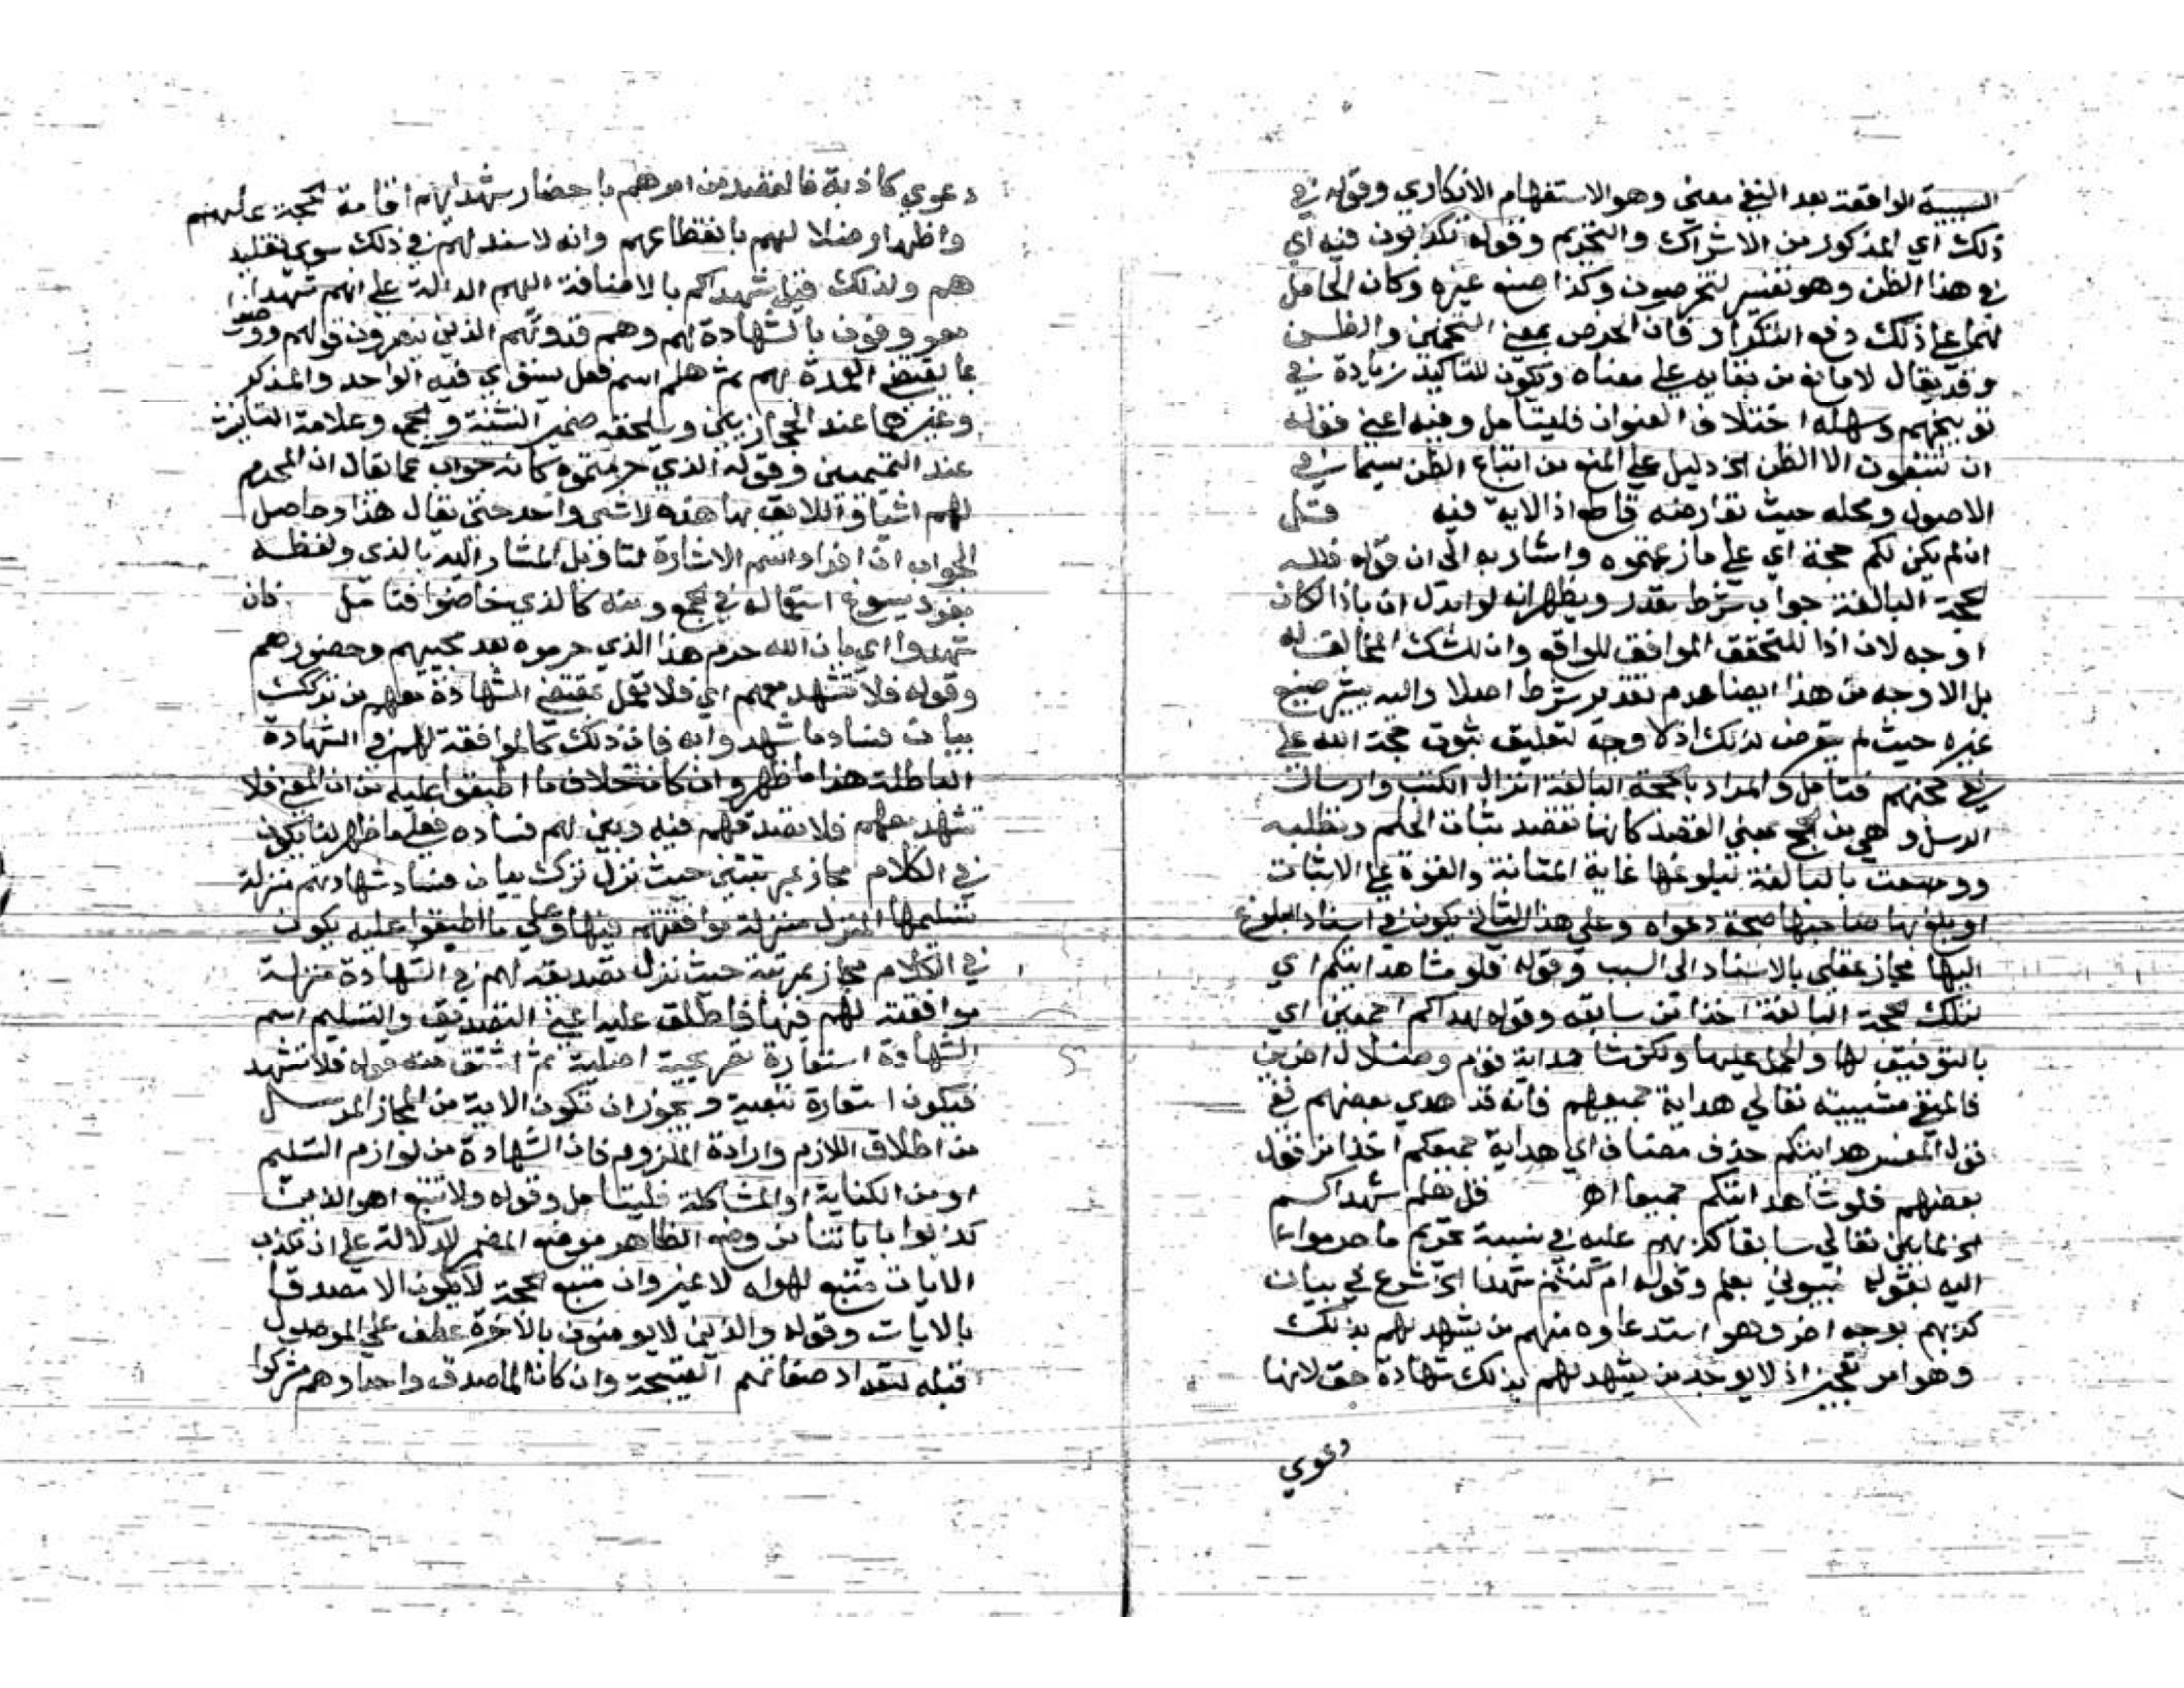 السببية الواقعة بعد النفي معنى وهو الاستفهام الانكاري وقوله في
ذلك اي المذكور من الاشراك والتحريم وقوله تكذبون فيه اي
في هذا الظن وهو تفسير لتخرصون وكذا صنع غيره وكان الحامل
لهما على ذلك دفع التكرار فان الخرص بمعنى التخمين والظن
وقد يقال لا مانع من بقايه على معناه ويكون للتاكيد زيادة في
توبيخهم وسهله اختلاف العنوان فليتامل وفيه اعني قوله
ان تتبعون الا الظن الخ دليل على المنع من اتباع الظن سيما في
الاصول ومحله حيث تعارضه قاطع اذ الاية فيه قل
ان لم يكن لكم حجة اي على ما زعمتموه واشار به الى ان قوله فلله
الحجة البالغة جواب شرط مقدر ويظهر انه لو ابدل ان باذا لكان
اوجه لان اذا للتحقق الموافق للواقع وان للشك المخالف له
بل الاوجه من هذا ايضا عدم تقدير شرط اصلا واليه يشير صنيع
غيره حيث لم يتعرض لذلك اذ لا وجه لتعليق ثبوت حجة الله على
نفي حجتهم فتامل والمراد بالحجة البالغة انزال الكتب وارسال
الرسل وهي من الحج بمعنى القصد كانها تقصد بثبات الحكم وتطلبه
ووصفت بالبالغة لبلوغها غاية المتانة والقوة على الاثبات
او بلغ بها صاحبها صحة دعواه وعلى هذا الثاني يكون في اسناد البلوغ
اليها مجاز عقلي بالاسناد الى السبب وقوله فلو شاهدايتكم اي
لتلك الحجة البالغة اخذا من سابقه وقوله لهداكم اجمعين اي
بالتوفيق لها والحمل عليها ولكن شا هداية قوم وضلال اخرين
فالمنفي مشيبته تعالي هداية جميعهم فانه قد هدي بعضهم ففي
قول المفسر هدايتكم حذف مضاف اي هداية جميعكم اخذا من قول
بعضهم فلو شا هدايتكم جميعا اهـ قل هلم شهداكم
الخ لما بين تعالي سابقا كذبهم عليه في نسبة تحريم ما حرموا
اليه بقوله نبيوني بعلم وقوله ام كنتم شهدا الخ شرع في بيان
كذبهم بوجه اخر وهو استدعاوه منهم من يشهد لهم بذلك
وهو امر تعجيز اذ لا يوجد من يشهد لهم بذلك شهادة حق لانها
دعوي
دعوي كاذبة فالقصد من امرهم باحضار شهدايهم اقامة الحجة عليهم
واظهار ضلالهم بانقطاعهم وانه لا سند لهم في ذلك سوي تقليد
هم ولذلك قيل شهداكم بالاضافة اليهم الدالة على انهم شهدا
معروفون بالشهادة لهم وهم قدوتهم الذين ينصرون قولهم ووصفوا
بما يقتضي العهدة بهم ثم هلم اسم فعل يستوي فيه الواحد والمذكر
وغيرهما عند الحجازيين ويلحقه ضمير التثنية والجمع وعلامة التانيث
عند التميميين وقوله الذي حرمتموه كانه جواب عما يقال ان المحرم
لهم اشيا فاللايق بها هذه لا شي واحد حتى يقال هذا وحاصل
الجواب ان افراد اسم الاشارة لتاويل المشار اليه بالذي ولفظه
مفرد يسوغ استعماله في الجمع ومنه كالذي خاضوا فتامل فان
شهدوا اي بان الله حرم هذا الذي حرموه بعد مجييهم وحضورهم
وقوله فلا تشهد معهم اي فلا تعمل بمقتضي الشهادة معهم من تركك
بيان فساد ما شهدوا به فان ذلك كالموافقة لهم في الشهادة
الباطلة هذا ما ظهر وان كان خلاف ما اطبقوا عليه من ان المعنى فلا
تشهد معهم فلا تصدقهم فيه وبين لهم فساده فعلى ما ظهر لنا يكون
في الكلام مجاز بمرتبتين حيث نزل ترك بيان فساد شهادتهم منزلة
تسليمها المنزل منزلة موافقتهم فيها وعلى ما اطبقوا عليه يكون
في الكلام مجاز بمرتبة حيث نزل تصديقه لهم في الشهادة منزلة
موافقته لهم فيها فاطلق عليه اعني التصديق والتسليم اسم
الشهادة استعارة تصريحية اصلية ثم اشتق منه قوله فلا تشهد
فيكون استعارة تبعية ويجوز ان تكون الاية من المجاز المرسل
من اطلاق اللازم وارادة الملزوم فان الشهادة من لوازم التسليم
او من الكناية او المشاكلة فليتامل وقوله ولا تتبع اهوا الذين
كذبوا باياتنا من وضع الظاهر موضع المضمر للدلالة على ان مكذب
الايات متبع لهواه لا غير وان متبع الحجة لا يكون الا مصدقا
بالايات وقوله والذين لا يومنون بالاخرة عطف على الموصول
قبله لتعداد صفاتهم القبيحة وان كان الماصدق واحدا وهم مشركوا